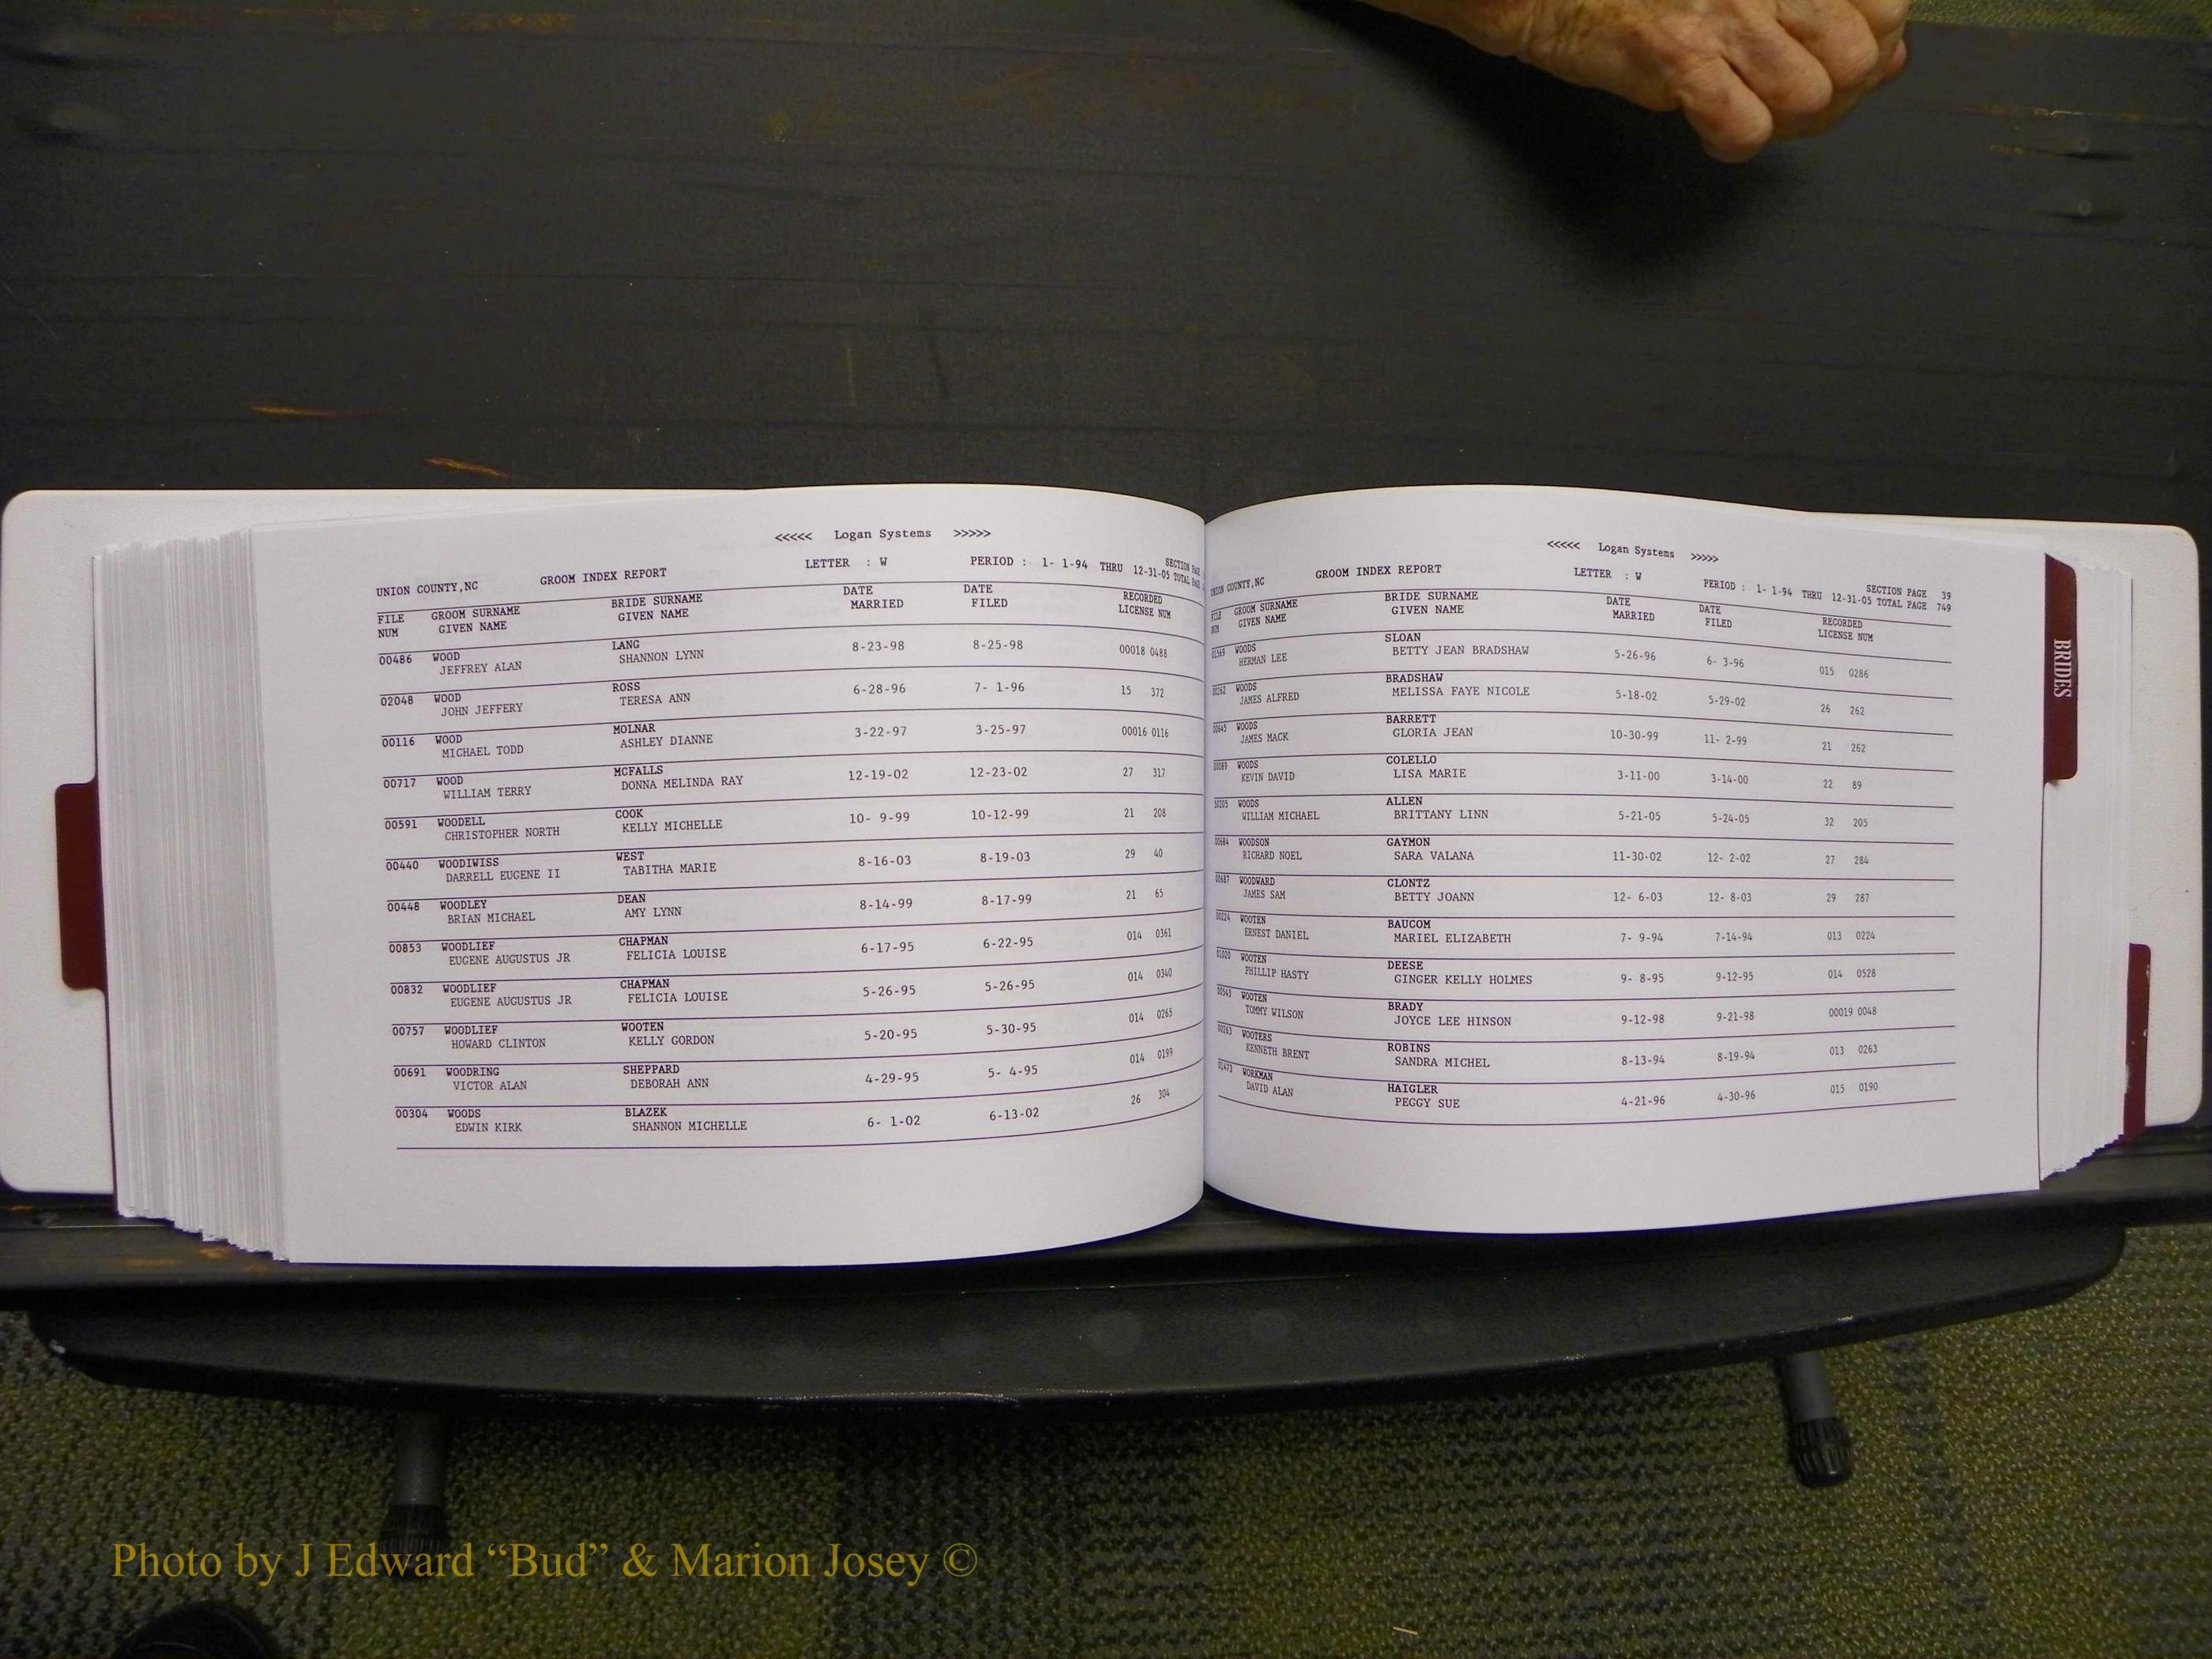 <<<<< Logan Systems >>>>>
UNION COUNTY,NC GROOM INDEX REPORT LETTER : W PERIOD : 1- 1-94 THRU 12-31-05 SECTION PAGE
TOTAL PAGE
FILE GROOM SURNAME BRIDE SURNAME DATE DATE RECORDED
NUM GIVEN NAME GIVEN NAME MARRIED FILED LICENSE NUM
00486 WOOD LANG 8-23-98 8-25-98 00018 0488
JEFFREY ALAN SHANNON LYNN
02048 WOOD ROSS 6-28-96 7- 1-96 15 372
JOHN JEFFERY TERESA ANN
00116 WOOD MOLNAR 3-22-97 3-25-97 00016 0116
MICHAEL TODD ASHLEY DIANNE
00717 WOOD MCFALLS 12-19-02 12-23-02 27 317
WILLIAM TERRY DONNA MELINDA RAY
00591 WOODELL COOK 10- 9-99 10-12-99 21 208
CHRISTOPHER NORTH KELLY MICHELLE
00440 WOODIWISS WEST 8-16-03 8-19-03 29 40
DARRELL EUGENE II TABITHA MARIE
00448 WOODLEY DEAN 8-14-99 8-17-99 21 65
BRIAN MICHAEL AMY LYNN
00853 WOODLIEF CHAPMAN 6-17-95 6-22-95 014 0361
EUGENE AUGUSTUS JR FELICIA LOUISE
00832 WOODLIEF CHAPMAN 5-26-95 5-26-95 014 0340
EUGENE AUGUSTUS JR FELICIA LOUISE
00757 WOODLIEF WOOTEN 5-20-95 5-30-95 014 0265
HOWARD CLINTON KELLY GORDON
00691 WOODRING SHEPPARD 4-29-95 5- 4-95 014 0199
VICTOR ALAN DEBORAH ANN
00304 WOODS BLAZEK 6- 1-02 6-13-02 26 304
EDWIN KIRK SHANNON MICHELLE
<<<<< Logan Systems >>>>>
UNION COUNTY,NC GROOM INDEX REPORT LETTER : W PERIOD : 1- 1-94 THRU 12-31-05 SECTION PAGE 39
TOTAL PAGE 749
FILE GROOM SURNAME BRIDE SURNAME DATE DATE RECORDED
NUM GIVEN NAME GIVEN NAME MARRIED FILED LICENSE NUM
WOODS SLOAN 5-26-96 6- 3-96 015 0286
HERMAN LEE BETTY JEAN BRADSHAW
00262 WOODS BRADSHAW 5-18-02 5-29-02 26 262
JAMES ALFRED MELISSA FAYE NICOLE
00645 WOODS BARRETT 10-30-99 11- 2-99 21 262
JAMES MACK GLORIA JEAN
00089 WOODS COLELLO 3-11-00 3-14-00 22 89
KEVIN DAVID LISA MARIE
50205 WOODS ALLEN 5-21-05 5-24-05 32 205
WILLIAM MICHAEL BRITTANY LINN
00684 WOODSON GAYMON 11-30-02 12- 2-02 27 284
RICHARD NOEL SARA VALANA
00687 WOODWARD CLONTZ 12- 6-03 12- 8-03 29 287
JAMES SAM BETTY JOANN
00224 WOOTEN BAUCOM 7- 9-94 7-14-94 013 0224
ERNEST DANIEL MARIEL ELIZABETH
01020 WOOTEN DEESE 9- 8-95 9-12-95 014 0528
PHILLIP HASTY GINGER KELLY HOLMES
00543 WOOTEN BRADY 9-12-98 9-21-98 00019 0048
TOMMY WILSON JOYCE LEE HINSON
00263 WOOTERS ROBINS 8-13-94 8-19-94 013 0263
KENNETH BRENT SANDRA MICHEL
01473 WORKMAN HAIGLER 4-21-96 4-30-96 015 0190
DAVID ALAN PEGGY SUE
BRIDES
Photo by J Edward “Bud” & Marion Josey ©